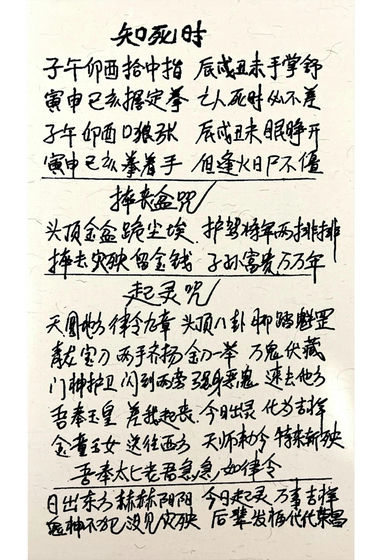 知死时
子午卯酉拾中指 辰戌丑未手掌舒
寅申巳亥握定拳 亡人死时必不差
子午卯酉口狼张 辰戌丑未眼睁开
寅申巳亥拳着手 但逢火日尸不僵
摔丧盆咒
头顶金盆跪尘埃 护驾将军两排排
摔去灾殃留金钱 子孙富贵万万年
起灵咒
天圆地方 律令九章 头顶八卦 脚踏魁罡
青龙宝刀 两手齐扬 金刀一举 万鬼伏藏
门神护卫 闪到两旁 恶鬼 速去他方
吾奉玉皇 差我起丧 今日出灵 化为吉祥
金童玉女 送往西方 天师敕令 特来斩殃
吾奉太上老君急急如律令
日出东方赫赫阴阳 今日起灵 万事吉祥
神不犯 没见灾殃 后辈发福代代荣昌